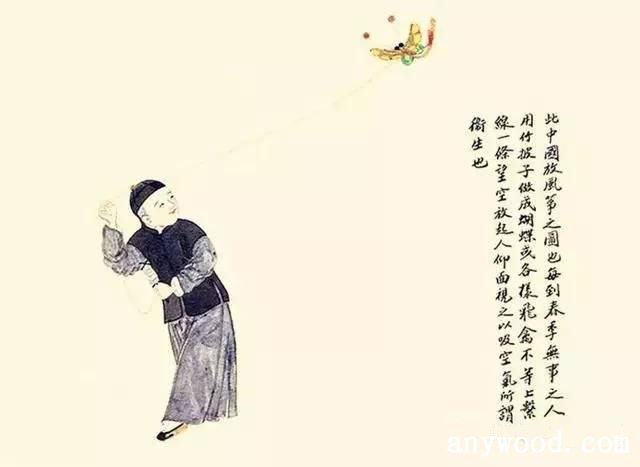 此中國放風箏之圖也每到春季無事之人
用竹披子做成蝴蝶或各樣飛禽不等上繫
線一條望空放起人仰面視之以吸空氣所謂
衛生也
www.anywood.com